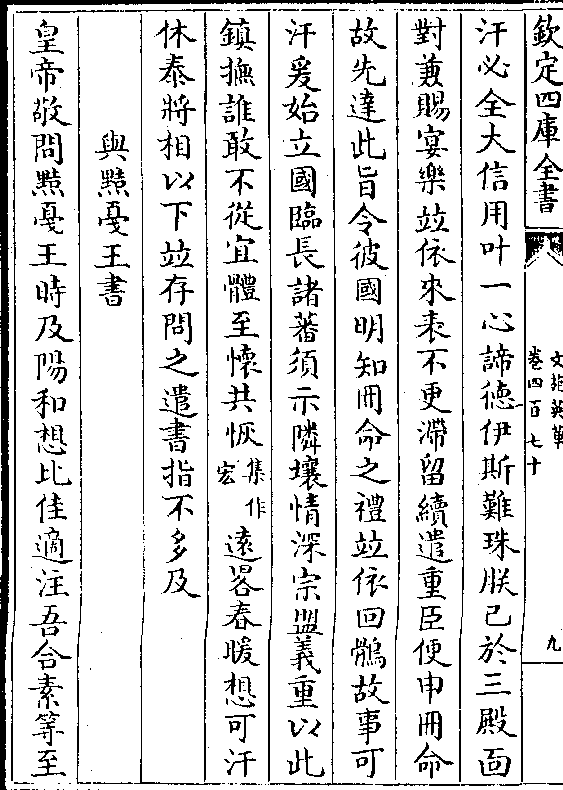 欽定四庫全書
文苑英華
卷四百七十
九
汗必全大信用叶一心諦德伊斯難珠朕已於三殿面
對兼賜宴樂竝依來表不更滯留續遣重臣便申冊命
故先達此旨令彼國明知冊命之禮竝依回鶻故事可
汗爰始立國臨長諸蕃須示隣壤情深宗盟義重以此
鎮撫誰敢不從宜體至懷共恢集作宏遠畧春暖想可汗
休泰將相以下竝存問之遣書指不多及
與黠戞王書
皇帝敬問黠戞王時及陽和想比佳適注吾合素等至